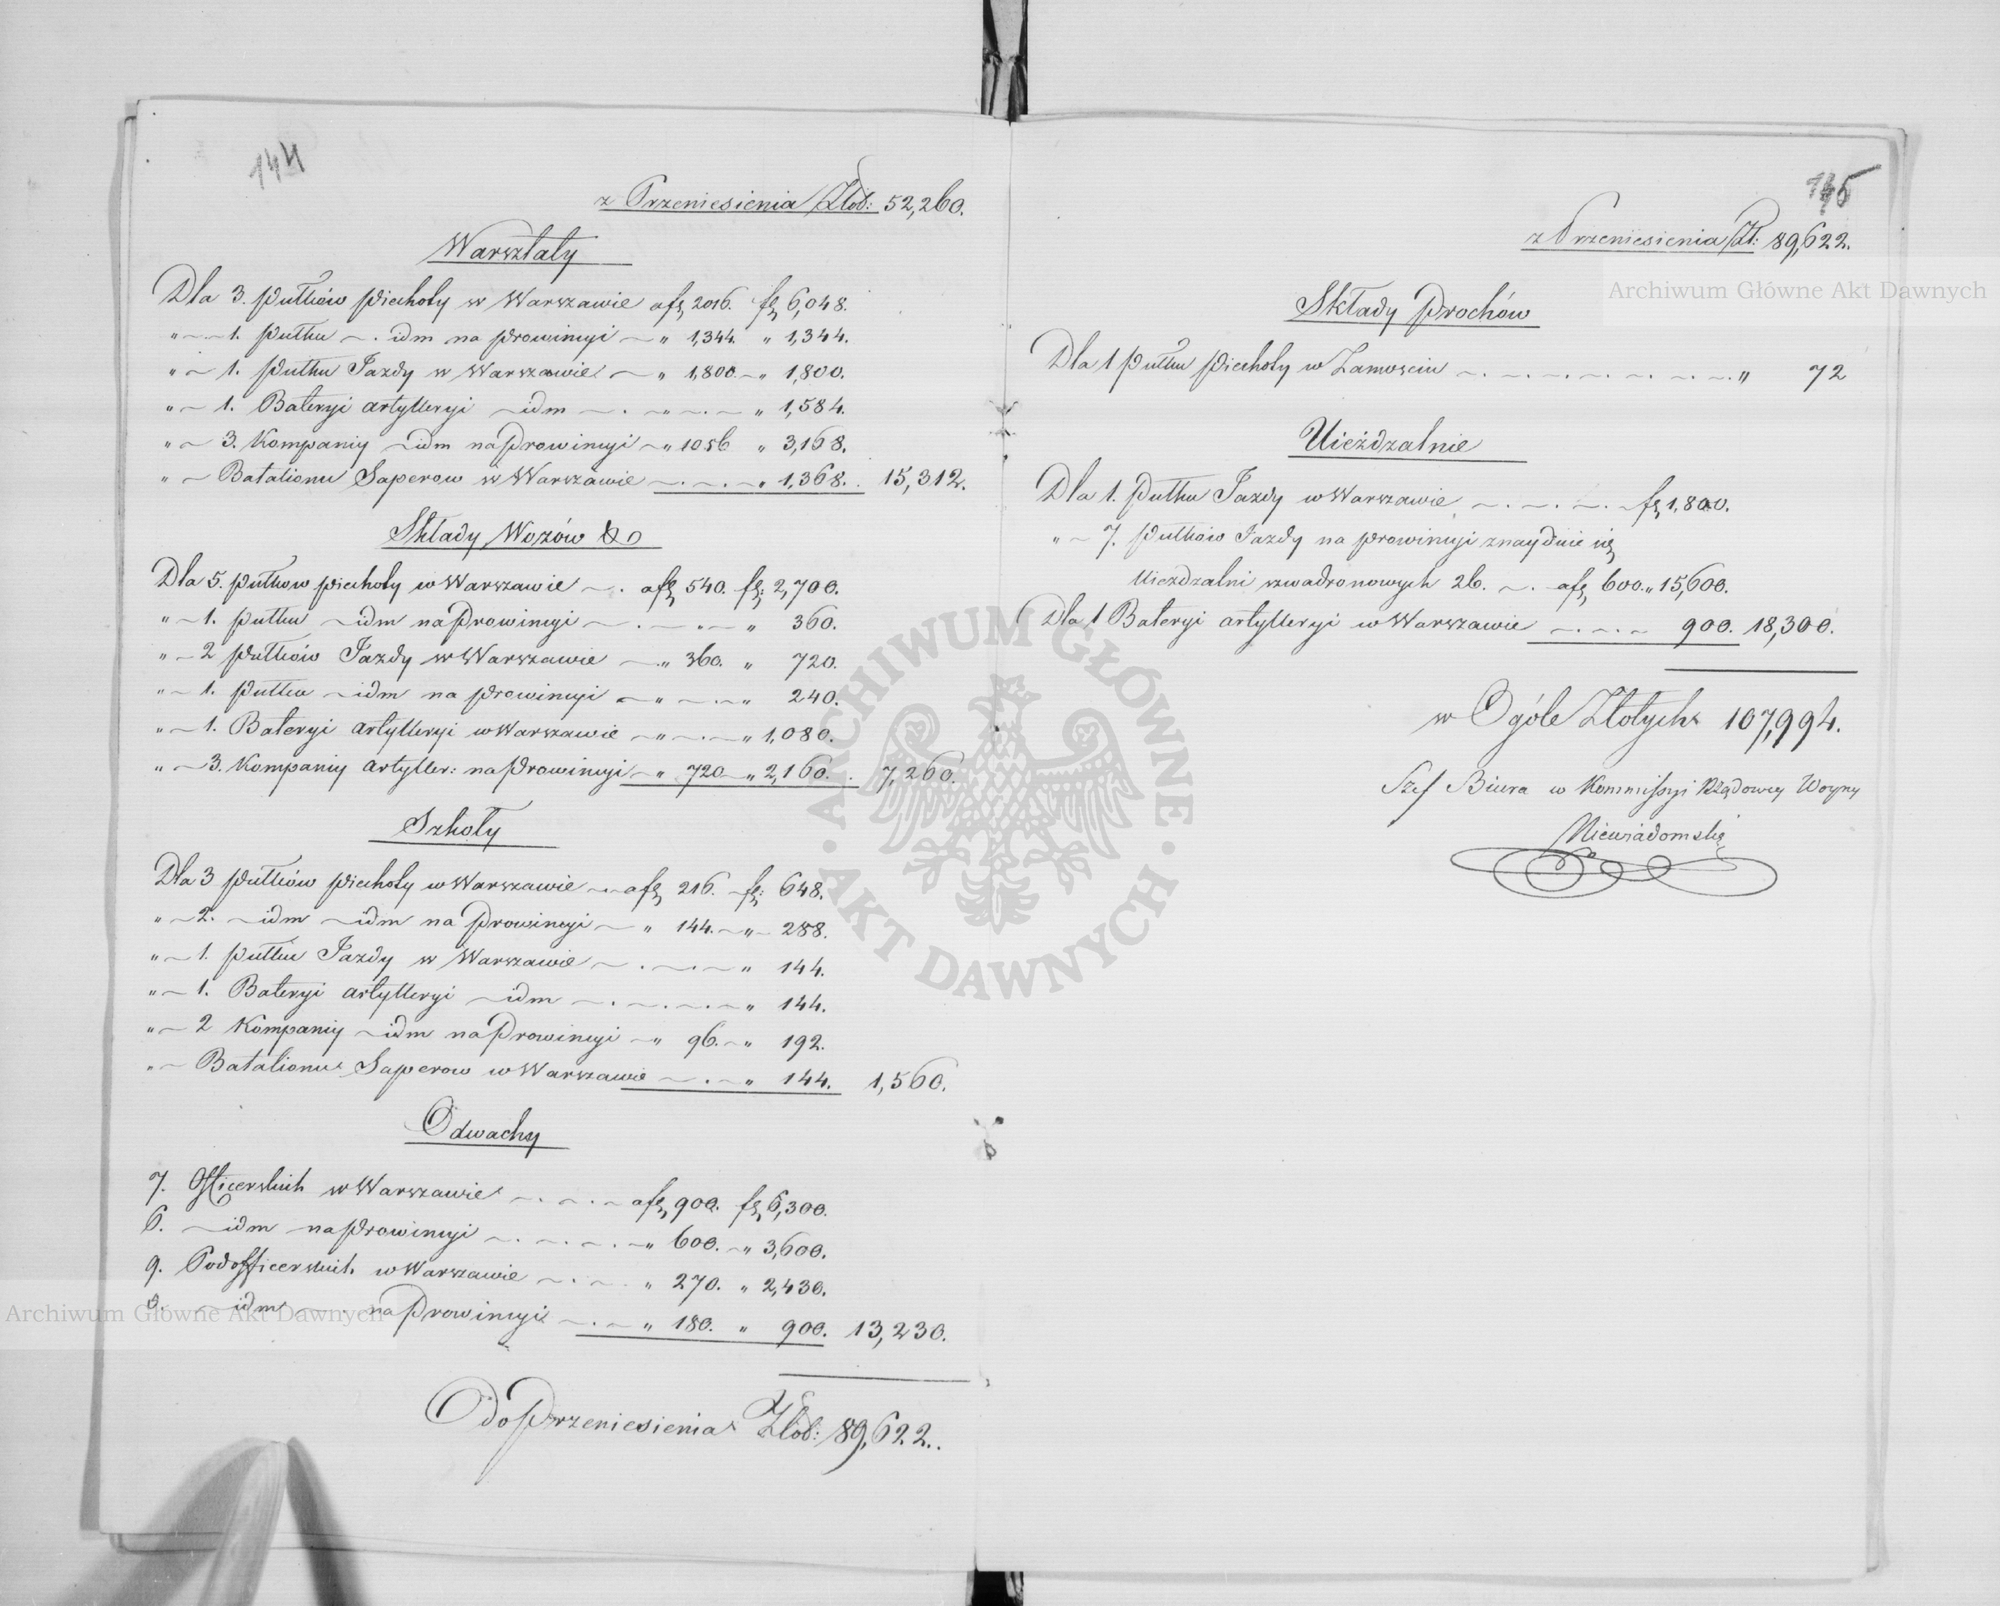 144
z Przeniesienia Złod: 52,260.
Warsztaty
Dla 3. Pułków Piechoty w Warszawie a fl 2016. fl 6,048.
" — 1. Pułku — idm na Prowincyi — " 1,344. " 1,344.
" — 1. Pułku Jazdy w Warszawie — " 1,800. — " 1,800.
" — 1. Bateryi Artylleryi — idm — . — " — . — " 1,584.
" — 3. Kompaniy — idm na Prowincyi — " 1056 " 3,168.
" — Batalionu Saperow w Warszawie — . — . — " 1,368. 15,312.
Składy Wozów &o
Dla 5. Pułkow Piechoty w Warszawie — . a fl 540. fl: 2,700.
" — 1. Pułku — idm na Prowincyi — . — " — " 360.
" — 2 Pułków Jazdy w Warszawie — " 360. " 720.
" — 1. Pułku — idm na Prowincyi — " — . — " 240.
" — 1. Bateryi Artylleryi w Warszawie — " — . — " 1,080.
" — 3. Kompaniy Artyller: na Prowincyi — " 720 — " 2,160. 7,260.
Szkoły
Dla 3 Pułków Piechoty w Warszawie — a fl 216. fl: 648.
" — 2. — idm — idm na Prowincyi — " 144. — " 288.
" — 1. Pułku Jazdy w Warszawie — . — . — " 144.
" — 1. Bateryi Artylleryi — idm — . — . — . — " 144.
" — 2 Kompaniy — idm na Prowincyi — " 96. — " 192.
" — Batalionu Saperow w Warszawie — . — " 144. 1,560.
Odwachy
7. Officerskich w Warszawie — . — . — a fl 900. fl 6,300.
6. — idm — na Prowincyi — . — . — . — " 600. — " 3,600.
9. Podofficerskich w Warszawie — . — . " 270. " 2,430.
5. — idm — . na Prowincyi — . — " 180. " 900. 13,230.
do Przeniesienia Złod: 89,622..
145
z Przeniesienia Zł: 89,622.
Składy Prochów
Dla 1 Pułku Piechoty w Zamosciu — . — . — . — . — . — . — . " 72
Uieżdzalnie
Dla 1. Pułku Jazdy w Warszawie — . — . — . — fl 1,800.
" — 7. Pułków Jazdy na prowincyi znayduie się
Uieżdzalni szwadronowych 26. — . a fl 600. " 15,600.
Dla 1 Bateryi Artylleryi w Warszawie — . — . — 900. 18,300.
w Ogóle Złotych 107,994.
Szef Biura w Kommissyi Rządowey Woyny
Niewiadomski
Archiwum Główne Akt Dawnych
ARCHIWUM GŁÓWNE
AKT DAWNYCH
Archiwum Główne Akt Dawnych